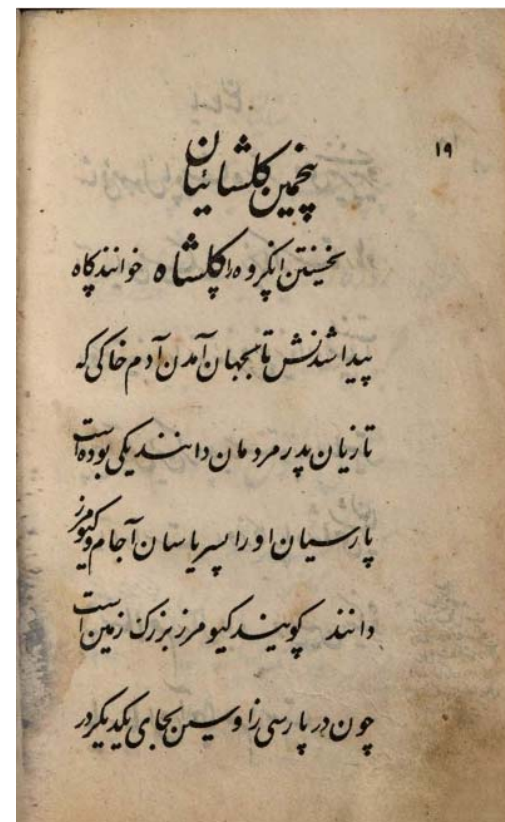 ۱۹
پنجمین کلشائیان
نخستین اینگروه را کلشاه خوانند کاه
پیدا شدنش تا بجهان آمدن آدم خاکی که
تازیان پدر مردمان دانند یکی بوده است
پارسیان او را پسر یاسان آجام و کیومرز
دانند کویند کیومرز بزرک زمین است
چون در پارسی زا و سین بجای یکدیکر در